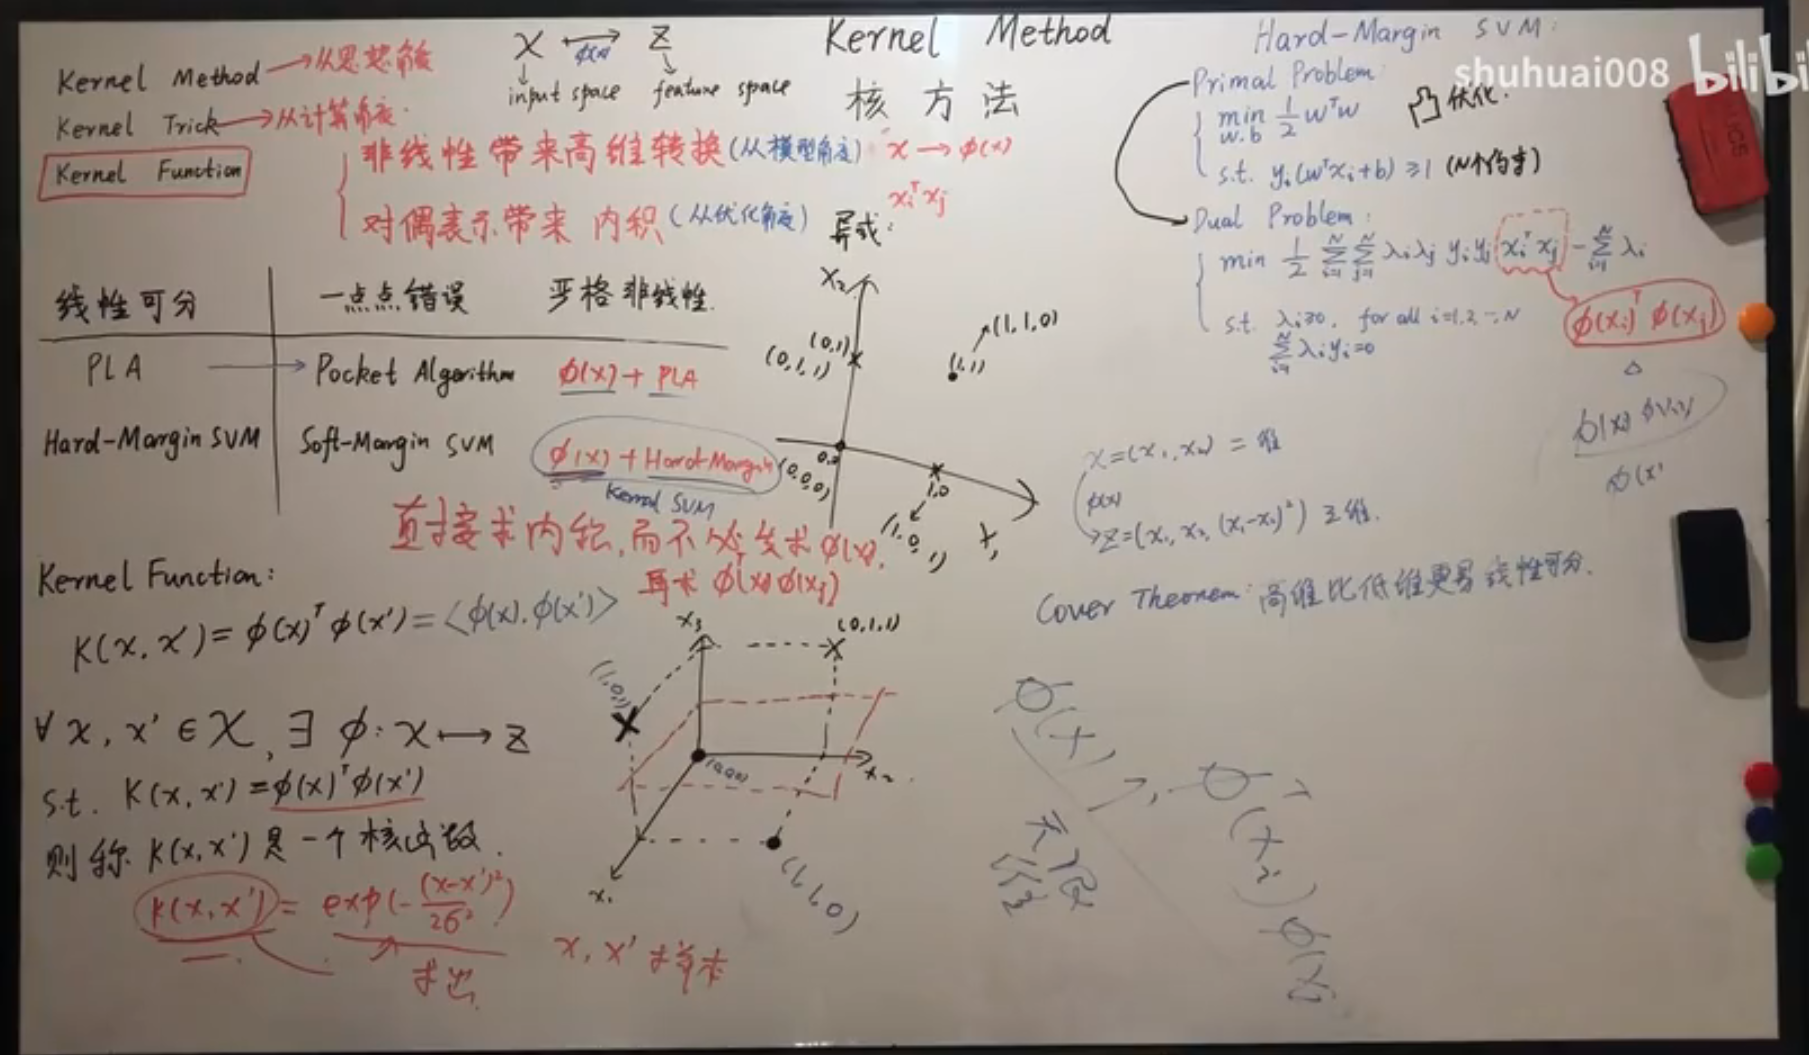 Kernel Method → 从思想角度
Kernel Trick → 从计算角度.
Kernel Function
X ⟼ Z
ϕ(x)
input space feature space
Kernel Method
核方法
非线性带来高维转换(从模型角度) x → ϕ(x)
对偶表示带来内积(从优化角度) xᵢᵀxⱼ
异或:
线性可分 一点点错误 严格非线性.
PLA → Pocket Algorithm ϕ(x) + PLA
Hard-Margin SVM Soft-Margin SVM ϕ(x) + Hard-Margin
Kernel SVM
直接求内积,而不必去求 ϕ(x).
再求 ϕᵀ(xᵢ)ϕ(xⱼ)
Kernel Function:
K(x, x') = ϕ(x)ᵀϕ(x') = <ϕ(x), ϕ(x')>
∀ x, x' ∈ X, ∃ ϕ: x ⟼ z
s.t. K(x, x') = ϕ(x)ᵀϕ(x')
则称 K(x, x') 是一个核函数.
K(x, x') = exp(-(x-x')²/2σ²)
求出
x, x'
X₂
(0,1)
(0,1,1)
(1,1,0)
(1,1)
0,0
(0,0,0)
1,0
(1,0,1)
X₁
x₃
(0,1,1)
(1,0,1)
(0,0,0)
x₂
x₁
(1,1,0)
Hard-Margin SVM:
shuhuai008 bilibi
Primal Problem
min 1/2 wᵀw
w.b
凸优化.
s.t. yᵢ(wᵀxᵢ+b) ≥ 1 (N个约束)
Dual Problem:
min 1/2 Σᵢ₌₁ᴺ Σⱼ₌₁ᴺ λᵢλⱼ yᵢyⱼ xᵢᵀxⱼ - Σᵢ₌₁ᴺ λᵢ
s.t. λᵢ≥0, for all i=1,2,…,N
Σᵢ₌₁ᴺ λᵢyᵢ=0
ϕ(xᵢ)ᵀ ϕ(xⱼ)
△
x=(x₁, x₂) 二维
ϕ(x)
→ z=(x₁, x₂, (x₁-x₂)²) 三维.
Cover Theorem: 高维比低维更易线性可分.
无限维